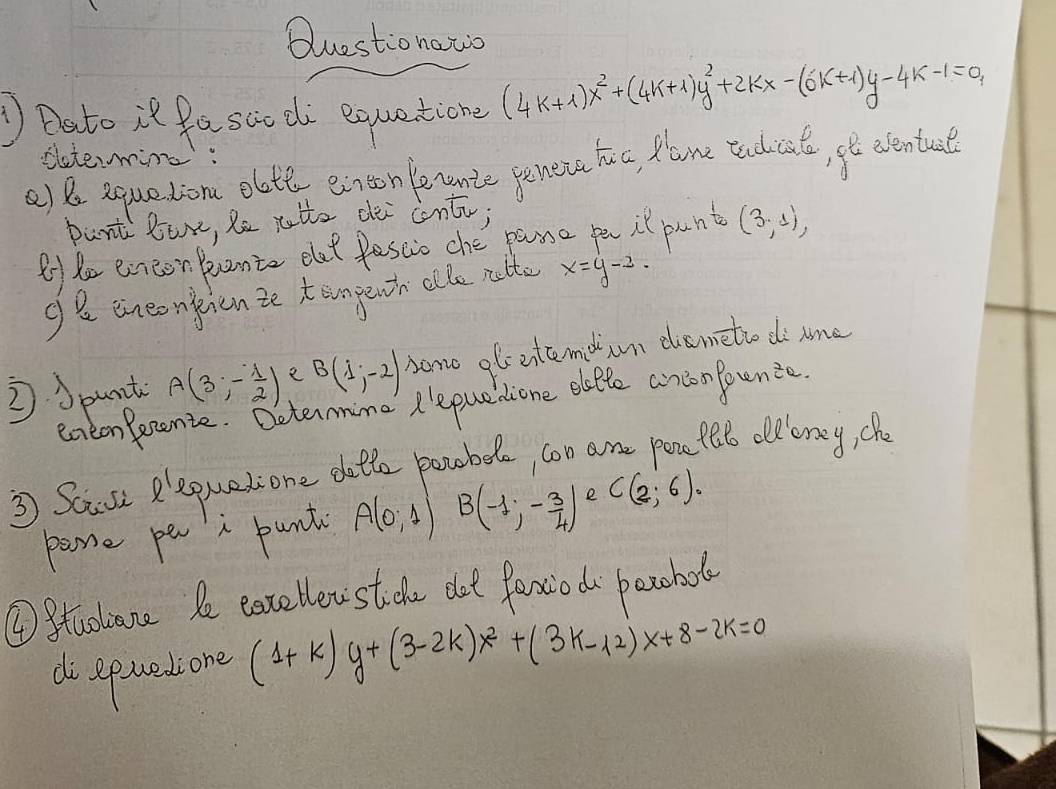 Questionario
1) Dato il fascio di equazione (4K+1)x²+(4K+1)y²+2Kx-(6K+1)y-4K-1=0,
determina:
a) le equazioni delle circonferenze generatrici, l'asse radicale, gli eventuali
punti base, la retta dei centri;
b) la circonferenza del fascio che passa per il punto (3;1),
c) le circonferenze tangenti alla retta x=y-3.
2) I punti A(3;-1/2) e B(1;-2) sono gli estremi di un diametro di una
circonferenza. Determina l'equazione della circonferenza.
3) Scrivi l'equazione della parabola, con asse parallelo all'asse y, che
passa per i punti A(0;1) B(-1;-3/4) e C(2;6).
4) Studiare le caratteristiche del fascio di parabole
di equazione (1+K)y+(3-2K)x²+(3K-12)x+8-2K=0